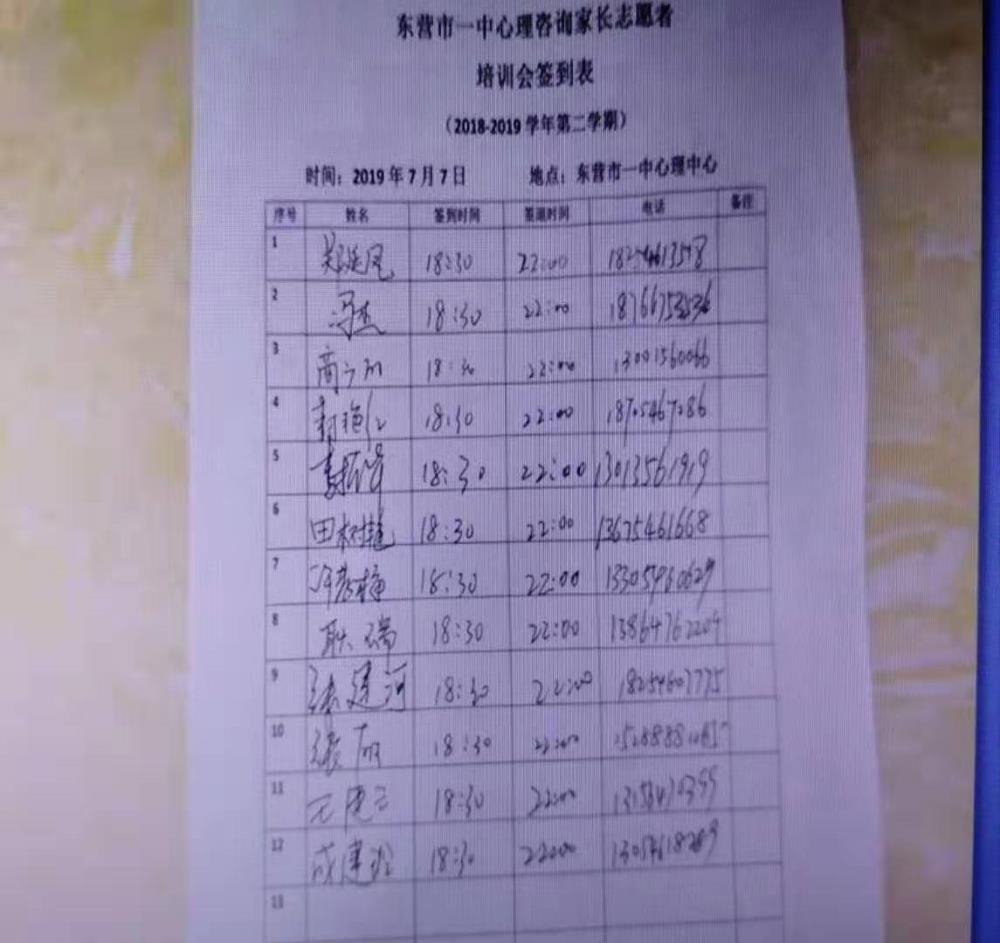 东营市一中心理咨询家长志愿者
培训会签到表
（2018-2019 学年第二学期）
时间：2019 年 7 月 7 日 地点：东营市一中心理中心
序号 姓名 签到时间 签退时间 电话 备注
1 18:30 22:00
2 冯杰 18:30 22:00
3 18:30 22:00 13001560066
4 18:30 22:00 18705467286
5 18:30 22:00 13013561919
6 田树 18:30 22:00 13675461668
7 18:30 22:00 13305460629
8 耿瑞 18:30 22:00 13864762204
9 张建河 18:30 22:00 18254607775
10 张丽 18:30 22:00
11 18:30 22:00
12 成建 18:30 22:00
13